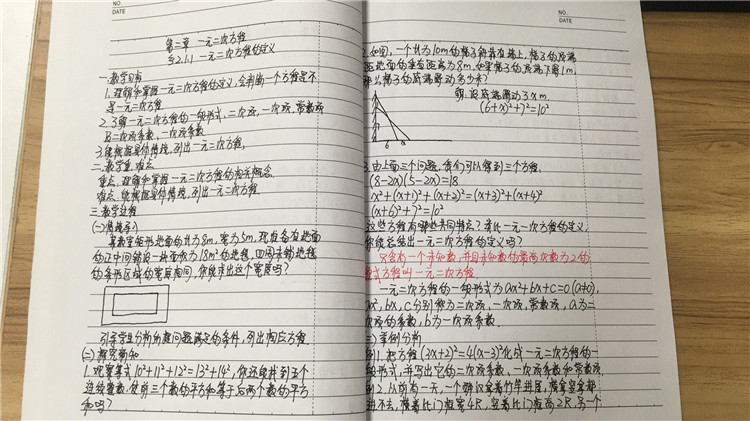 NO.
DATE
第二章 一元二次方程
§2.1.1 一元二次方程的定义
一.教学目标
1.理解和掌握一元二次方程的定义,会判断一个方程是不
是一元二次方程
2.了解一元二次方程的一般形式,二次项,一次项,常数项
及二次项系数,一次项系数
3.能根据具体情境,列出一元二次方程.
二.教学重、难点
重点:理解和掌握一元二次方程的相关概念.
难点:能根据具体情境,列出一元二次方程.
三.教学过程
(一)情境导入
某教室矩形地面的长为8m,宽为5m,现准备在地面
的正中间铺设一块面积为18m²的地毯,四周未铺地毯
的条形区域的宽度相同,你能求出这个宽度吗?
引导学生分析问题满足的条件,列出相应方程.
(二)探究新知
1.观察等式10²+11²+12²=13²+14²,你还能找到五个
连续整数,使前三个数的平方和等于后两个数的平方
和吗?
NO.
DATE
2.如图,一个长为10m的梯子斜靠在墙上,梯子的顶端
距地面的垂直距离为8m,如果梯子的顶端下滑1m,
那么梯子的底端滑动多少米?
解:设底端滑动了xm.
(6+x)²+7²=10²
6
x
3.由上面三个问题,我们可以得到三个方程.
(8-2x)(5-2x)=18
x²+(x+1)²+(x+2)²=(x+3)²+(x+4)²
(x+6)²+7²=10²
这些方程有哪些共同特点?类比一元一次方程的定义,
你能总结出一元二次方程的定义吗?
只含有一个未知数,并且未知数的最高次数为2的
整式方程叫一元二次方程
一元二次方程的一般形式为ax²+bx+c=0(a≠0),
ax²,bx,c分别称为二次项,一次项,常数项,a为二
次项的系数,b为一次项系数.
(三)案例分析
例1.把方程(3x+2)²=4(x-3)²化成一元二次方程的一
般形式,并写出它的二次项系数、一次项系数和常数项.
例2.从前有一天,一个醉汉拿着竹竿进屋,横拿竖拿都
进不去,横着比门框宽4尺,竖着比门框高2尺,另一个